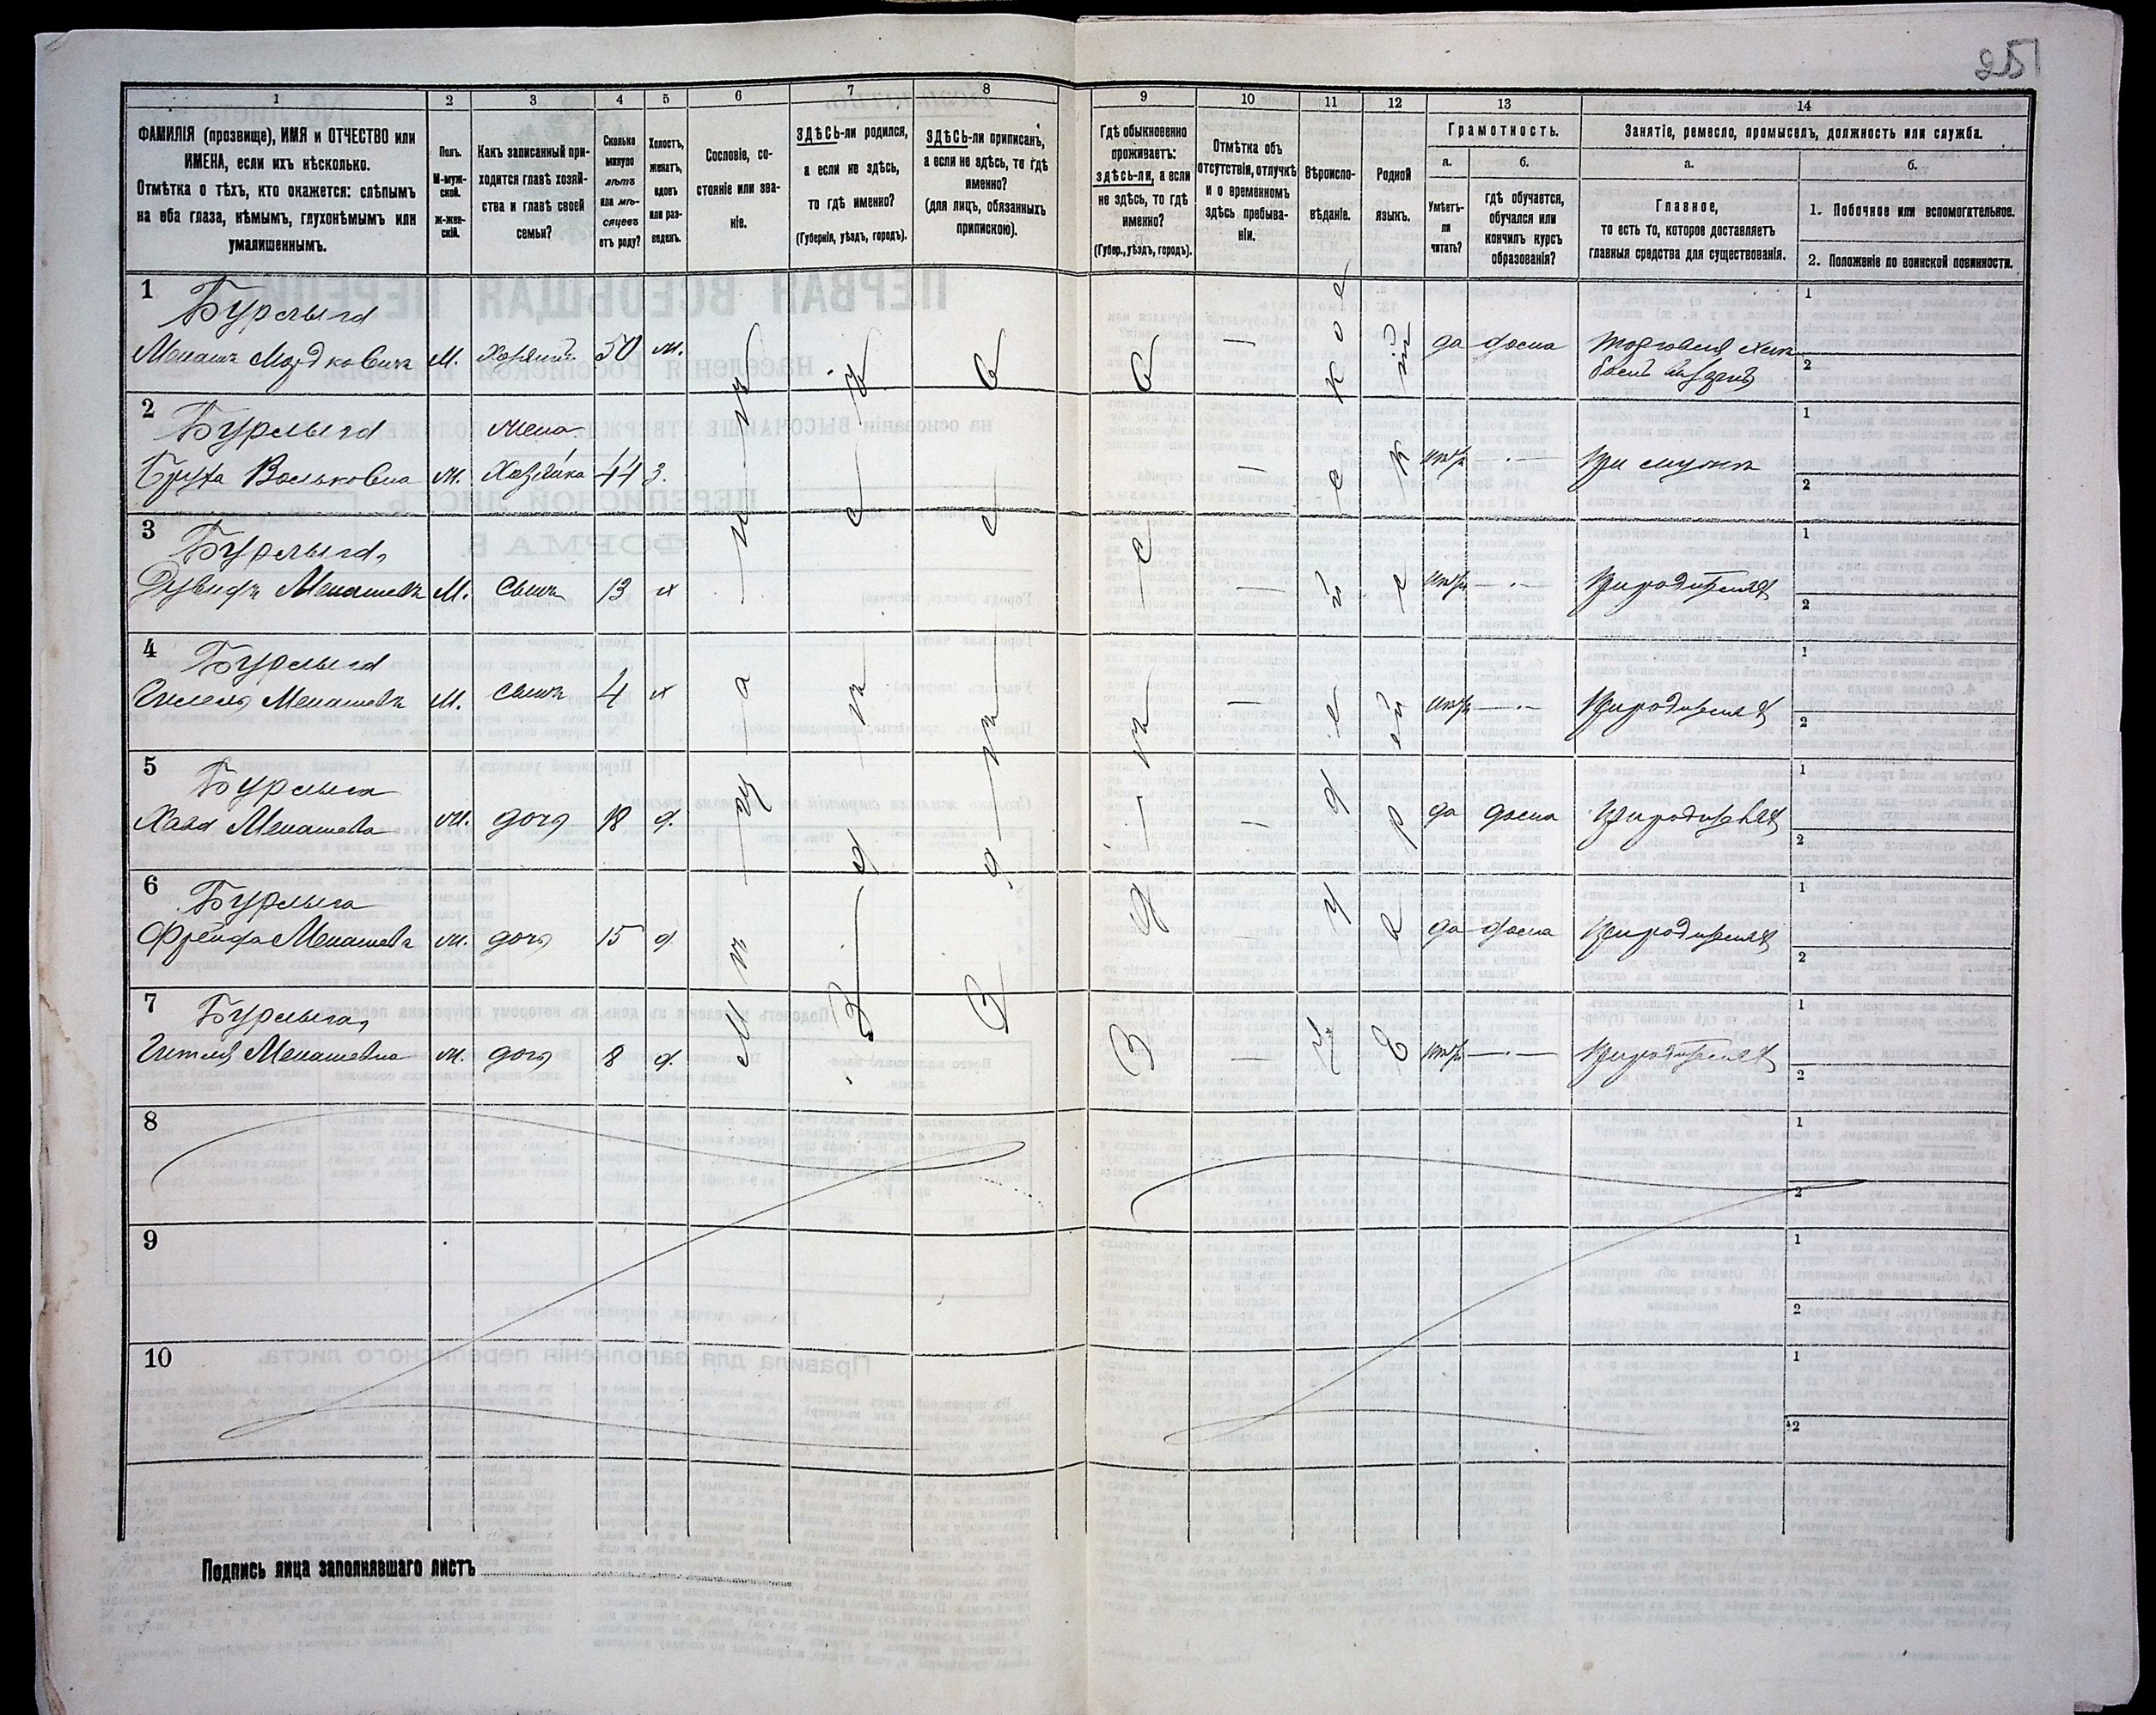 251
1 2 3 4 5 6 7 8 9 10 11 12 13 14
ФАМИЛІЯ (прозвище), ИМЯ и ОТЧЕСТВО или
ИМЕНА, если ихъ нѣсколько.
Отмѣтка о тѣхъ, кто окажется: слѣпымъ
на оба глаза, нѣмымъ, глухонѣмымъ или
умалишеннымъ.
Полъ.
М-муж-
ской.
Ж-жен-
скій.
Какъ записанный при-
ходится главѣ хозяй-
ства и главѣ своей
семьи?
Сколько
минуло
лѣтъ
или мѣ-
сяцевъ
отъ роду?
Холостъ,
женатъ,
вдовъ
или раз-
веденъ.
Сословіе, со-
стояніе или зва-
ніе.
ЗДѢСЬ-ли родился,
а если не здѣсь,
то гдѣ именно?
(Губернія, уѣздъ, городъ).
ЗДѢСЬ-ли приписанъ,
а если не здѣсь, то гдѣ
именно?
(для лицъ, обязанныхъ
припискою).
Гдѣ обыкновенно
проживаетъ:
здѣсь-ли, а если
не здѣсь, то гдѣ
именно?
(Губер., уѣздъ, городъ).
Отмѣтка объ
отсутствіи, отлучкѣ
и о временномъ
здѣсь пребыва-
ніи.
Вѣроиспо-
вѣданіе.
Родной
языкъ.
Грамотность.
а.
Умѣетъ-
ли
читать?
б.
гдѣ обучается,
обучался или
кончилъ курсъ
образованія?
Занятіе, ремесло, промыселъ, должность или служба.
а.
Главное,
то есть то, которое доставляетъ
главныя средства для существованія.
б.
1. Побочное или вспомогательное.
2. Положеніе по воинской повинности.
1 Бурлыга 1
Менашъ Мордковичъ М. Хозяинъ 50 ж. — да дома торговля 2
2 Бурлыга жена 1
Бруха Вольковна ж. Хозяйка 44 з. — нѣтъ — при мужѣ 2
3 Бурлыга 1
Менашевъ М. сынъ 13 х — нѣтъ — при родителяхъ 2
4 Бурлыга 1
Менашевъ М. сынъ 4 х — нѣтъ — при родителяхъ 2
5 Бурлыга 1
Хава Менашева ж. дочь 18 д. — да дома при родителяхъ 2
6 Бурлыга 1
Фрейда Менашева ж. дочь 15 д. — да дома при родителяхъ 2
7 Бурлыга 1
Гитля Менашевна ж. дочь 8 д. — нѣтъ — при родителяхъ 2
Мѣщанинъ
Здѣсь
Здѣсь
Здѣсь
Іудейское
Еврейскій
8 1
2
9 1
2
10 1
2
Подпись лица заполнявшаго листъ